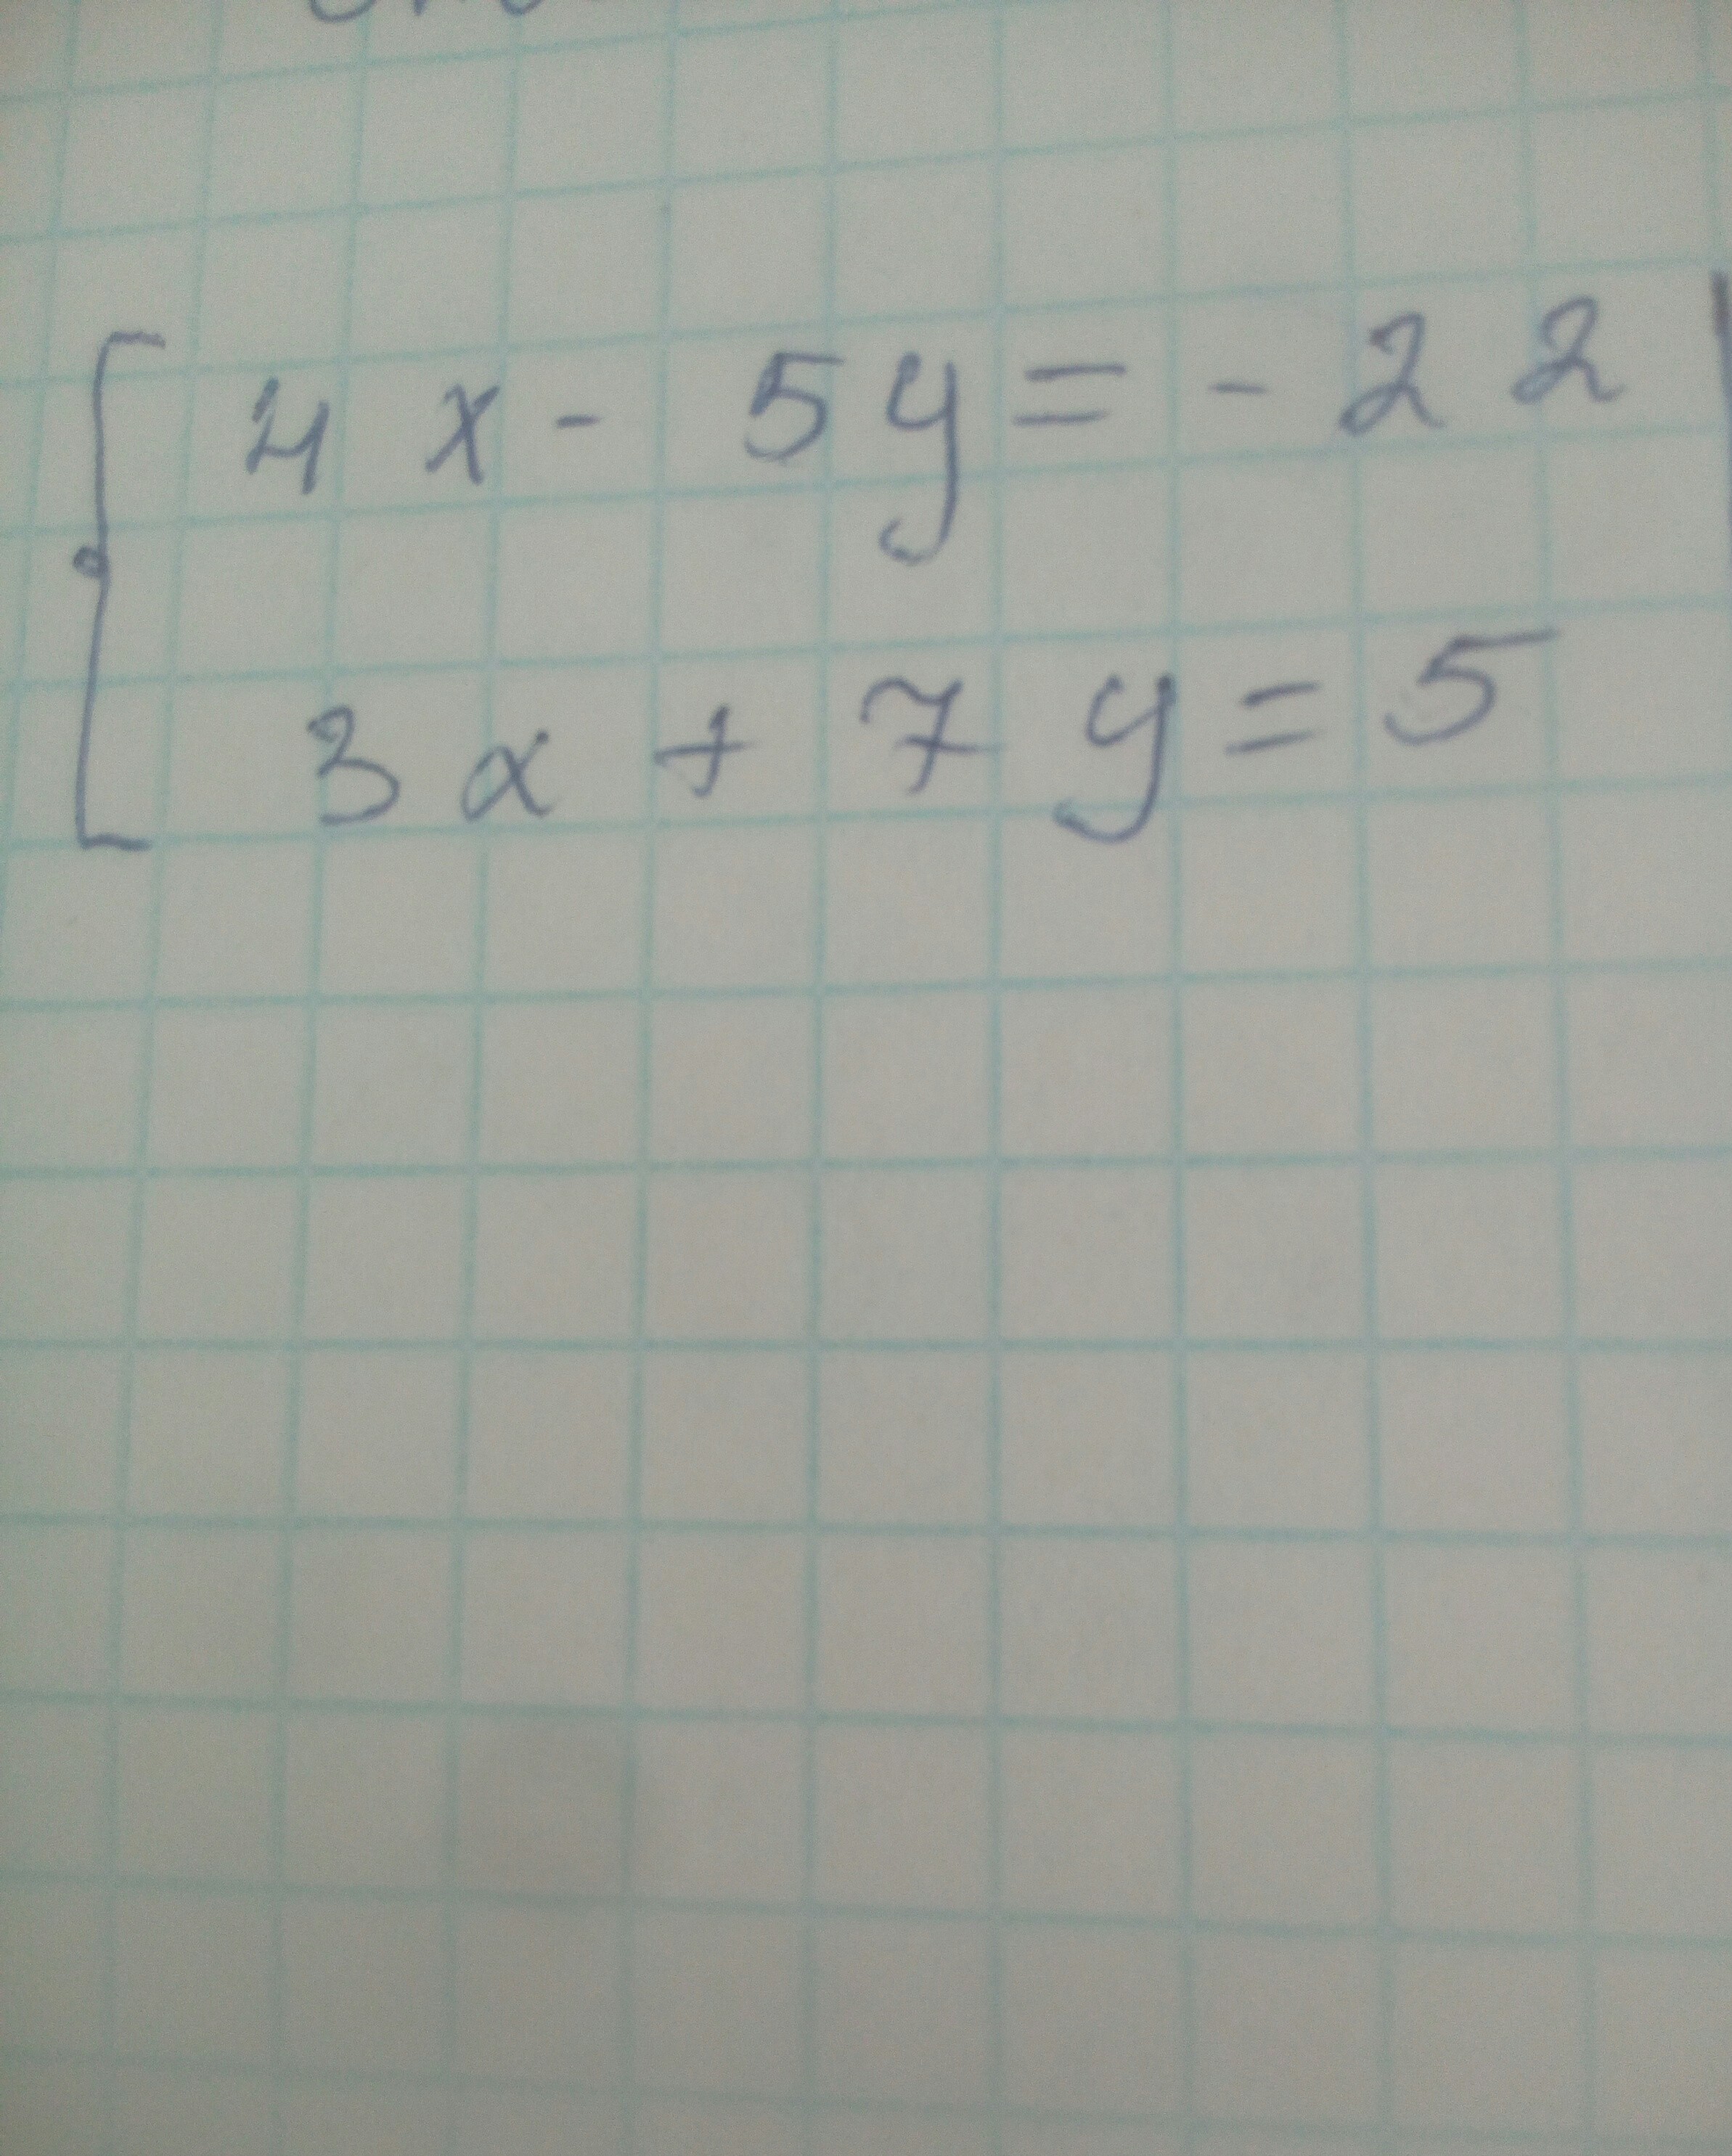 4x - 5y = - 22
3x + 7y = 5